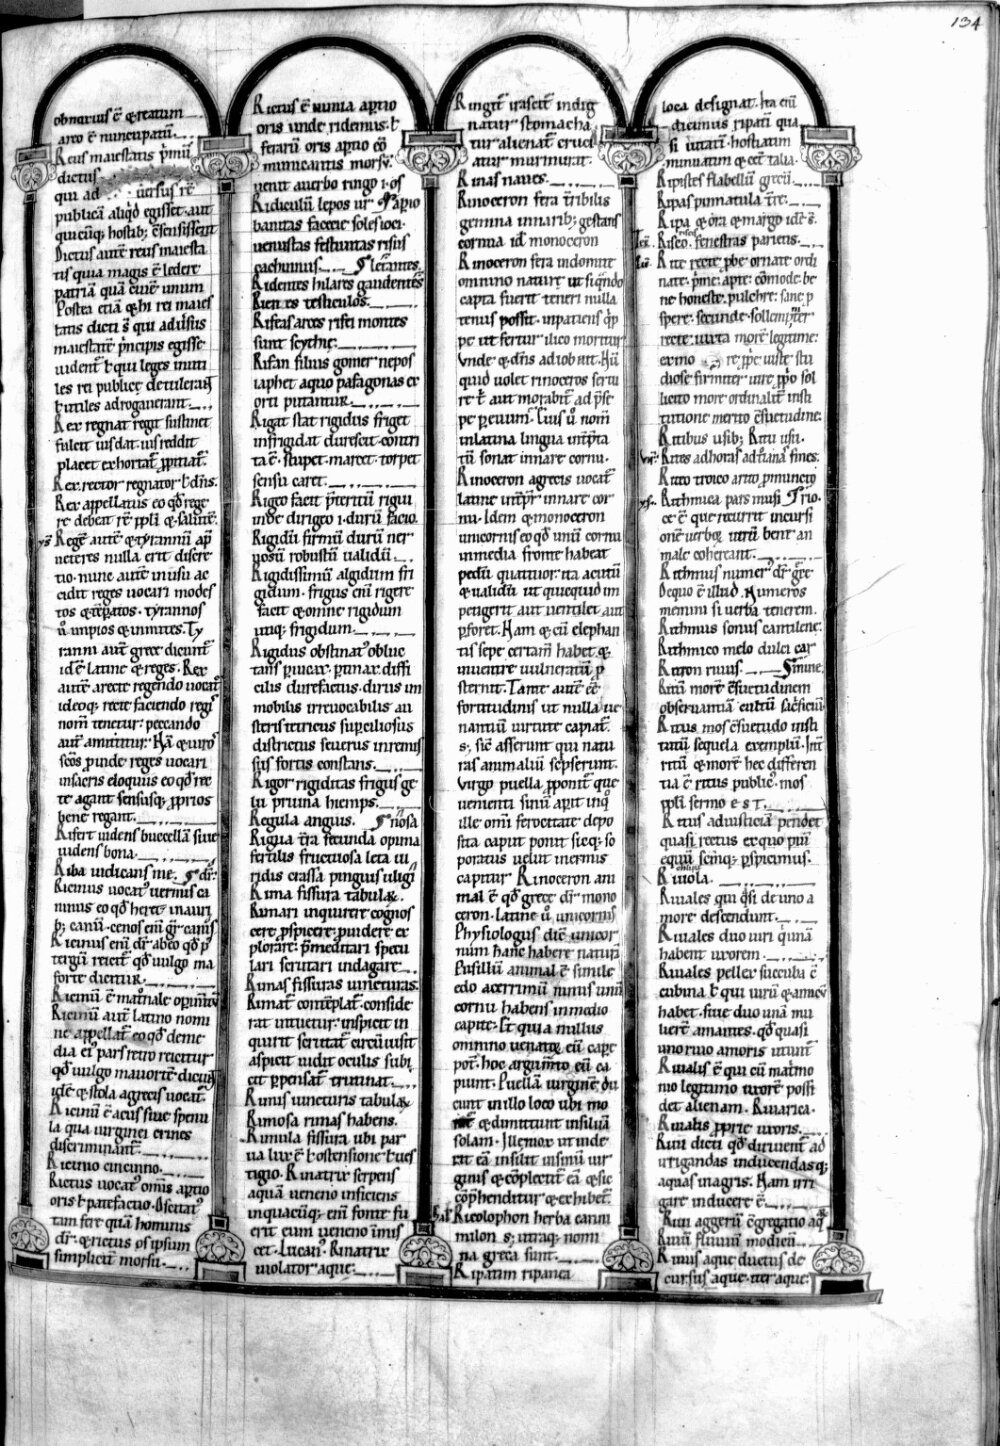 134
obnoxius ē & reatum
arto ē nuncupatū.
Reus maiestatis p̄miū
dictus
qui ad uersus rē
publicā aliq̇d egisset aut
quicūq; hostib; c̄sensissent
Dictus autē reus maiesta
tis quia magis ē ledere
patriā quā ciuē unum
Postea etiā & hi rei maies
tatis dicti s̄ qui aduersus
maiestatē p̄ncipis egisse
uidentˀ ł qui leges inuti
les rei publicę detulerant
ł utiles adrogauerant.
Rex regnat regit sustinet
fulcit iusdat ius reddit
placet exhortatˀ ꝓpitiatˀ.
Rex rector regnator ł dn̄s.
Rex appellatus eo qđ rege
re debeat
Regē autē & tyrannū apđ
ueteres nulla erit discre
tio. nunc autē in usu ac
cidit reges uocari modes
tos & tēpatos. tyrannos
ů impios & inmites. Ty
ranni autē grece dicuntˀ
id ē latine & reges. Rex
autē a recte regendo uocatˀ
ideoq; recte faciendo regis
nom̄ tenetur: peccando
autˀ amittitur. Hā & uiros
sc̄os proinde reges uocari
in sacris eloquiis eo qđ rec
te agant sensusq; ꝓprios
bene regant.
Rifert uidens buccellā siue
uidens bona.
Riba iudicans me. dr̄:
Ricinus uocatˀ uermis ca
ninus eo qđ heret in auri
b; canū. cenos enī gr̄e canis
Ricinus enī dr̄ ab eo qđ p̄
tergū reicitˀ qđ uulgo ma
forte dicitur.
Ricinū ē matronale operim̄tū
Ricinū autˀ latino nomi
ne appellatˀ eo qđ dimi
dia eiˀ pars retro reicitur
qđ uulgo mauorte dicunt
idē & stola a grecis uocatˀ.
Ricinū ē acus siue spenu
la qua uirginei crines
discriminantˀ.
Ricino cincinno.
Rictus uocatˀ om̄is aptio
oris ł patefactio. Dictatˀ
tam fere quā hominis
dr̄. & rictus os ipsum
simplicitˀ morsu.
Rictus ē nimia aptio
oris unde ridemus. ł
ferarū oris aptio cō
minuentis morsū.
uenit a uerbo ringo .i. os
Ridiculū lepos ur aperio
banitas facecie soles ioci
uenustas festiuitas risus
cachinnus. letantes.
Ridentes hilares gaudentes
Rien es testiculos.
Rifeas arces rifei montes
sunt scythię.
Rifan filius gomer nepos
iaphet a quo pafagonas ex
orti putantur.
Rigat stat rigidus friget
infrigidat durescit contri
ta ē. stupet. marcet. torpet
sensu caret.
Rigeo facit p̄teritū rigui
inde dirigeo .i. durū facio.
Rigidū firmū durū ner
uosū robustū ualidū.
Rigidissimū algidum fri
gidum. frigus enī rigere
facit & omne rigidum
utiq; frigidum.
Rigidus obstinatˀ oblue
tans puicax. ptinax. diffi
cilis durefactus. dirus im
mobilis irreuocabilis au
sterus tetricus supciliosus
districtus seuerus inremis
sus fortis constans.
Rigor rigiditas frigus ge
lu pruina hiemps.
Regula angus.
Rigua tr̄a fecunda opima
fertilis fructuosa leta ui
ridis crassa pinguis uligi
Rima fissura tabulax. nosa
Rimari inquirere cognos
cere pspicere puidere ex
plorare: p̄meditari specu
lari scrutari indagare.
Rimas fissuras uincturas.
Rimatˀ contēplatˀ. conside
rat intuetur. inspicit in
quirit scrutatˀ circū iusit
aspicit uidit oculis subi
cit ꝑpensatˀ trutinat.
Rimis uincturis tabulax
Rimosa rimas habens.
Rimula fissura ubi par
ua lux ē ł ostensione ł ues
tigio. Rinatrix serpens
aquā ueneno inficiens
in quacūq; enī fonte fu
erit eum ueneno īmis
cet. Lucanˀ. Rinatrix
uiolator aque.
Ringitˀ irascitˀ indig
natur stomacha
tur alienatˀ cruci
atur murmurat.
Rinas naues.
Rinoceron fera tribilis
gemina innarib; gestans
cornua id monoceron
Rinoceron fera indomita
omnino naturę ut si q̄ndo
capta fuerit teneri nulla
tenus possit. inpatiens q̄p
pe ut fertur ilico moritur
Vnde & dn̄s ad iob ait. Hū
quid uolet rinoceros serui
re ł aut morabitˀ ad p̄se
pe
in latina lingua inꝑta
tū sonat innare cornu.
Rinoceron a grecis uocatˀ
latine intꝑtˀ innare cor
nu. Idem & monoceron
unicornis eo qđ unū cornu
in media fronte habeat
pedū quattuor: ita acutū
& ualidū ut quęquid im
petigerit aut uentilet aut
ꝑforet. Nam & cū elephan
tis sepe certam̄ habet. &
in uentre uulneratū ꝓ
sternit. Tantę autē ēe
fortitudinis ut nulla ue
nantiū uirtute capiatˀ.
S; sic̄ asserunt qui natu
ras animaliū sc̄ꝑserunt.
Virgo puella ꝓponitˀ que
uenienti sinū apit in qˀ
ille omī ferocitate depo
sita caput ponit sicq; so
poratus uelut inermis
capitur. Rinoceron ani
mal ē qđ grece dr̄ mono
ceron. Latine ů unicornis
Physiologus dicitˀ unicor
num hanc habere naturā
Pusillū animal ē simile
edo acerrimū nimis unū
cornu habens in medio
capite. Et quia nullus
ommno uenator eū cape
potˀ. hoc argumto eū ca
piunt. Puellā uirginē du
cunt in illo loco ubi mo
ratˀ & dimittunt in siluā
solam. Ille mox ut uide
rit eā insilit in sinū uir
ginis & cōplectitˀ eā & sic
cōp̄henditur & exhibetˀ.
Ricolophon herba cami
milon s; utraq; nomi
na greca sunt.
Ripatim ripanea
loca designat. Ita enī
dicimus ripatī qua
si iuxtatī. hostiatim
minutatim & cetˀ talia.
Ripistes flabellū grecū.
Ripas pinnatula tr̄e.
Ripa & ora & margo idē s̄.
Riseo. fenestras parietis.
Rite recte ꝓbe ornate ordi
nate. p̄me. apte. cōmode. be
ne honeste. pulchre. sane ꝓ
spere. secunde. sollempniter
recte iuxta morē legitime:
ex mo re ꝓpe. iuste stu
diose firmiter iure ꝓpo sol
licito more ordinalitˀ insti
tutione merito c̄suetudine.
Ritibus usib; Ritu usu.
Rites ad horas ad ultimas fines.
Rito troico arto pmuneto
Rithmica pars musi Trio.
ce ē que recurrit incursi
onē uerbox utrū bene an
male cohereant.
Rithmus numerˀ dr̄ gr̄ece
De quo ē illud. Numeros
memini si uerba tenerem.
Rithmus sonus cantilene.
Rithmico melo dulci car
Riton riuus. mine.
Ritū morē c̄suetudinem
obseruantiā cultū sacrificiū.
Ritus mos c̄suetudo insti
tutū sequela exemplū. Int̄
ritū & morē hec differen
tia ē ritus publicˀ mos
ppli sermo e s t.
Ritus ad iusticiā pendet
quasi rectus ex quo piū
equū scimq; pspicimus.
Riuola.
Riuales qui q̄si de uno a
more descendunt.
Riuales duo uiri q̇ unā
habent uxorem.
Riuales pellex succuba ē
cubina ł qui uirū & amicū
habet. siue duo unā mu
lierē amantes. qđ quasi
uno riuo amoris utuntˀ
Riualis ē qui cū matrimo
nio legitimo uxorē possi
det alienam. Riuarica.
Riualis ꝓprie uxoris.
Riui dicti qđ diriuentˀ ad
irrigandas inducendasq;
aquas in agris. Nam irri
gare inducere ē.
Riui aggerū c̄gregatio aq̄.
Riuū fluuiū modicū.
Riuus aque ductus de
cursus aque. iter aque: